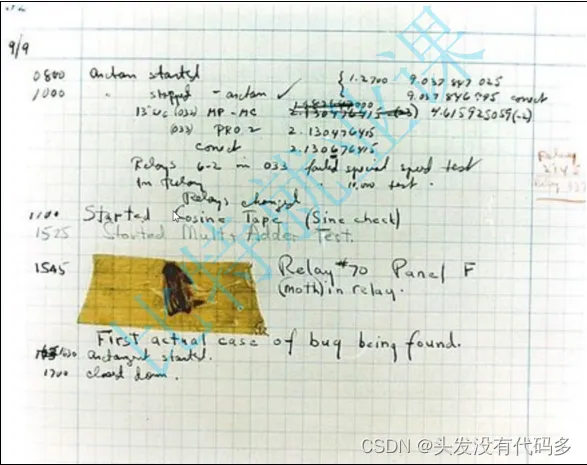 9/9
0800 Antan started
1000 " stopped - antan ✓ { 1.2700 9.037 847 025
9.037 846 995 correct
13"uc (032) MP-MC 2.130476415 (-3) 4.615925059(-2)
(033) PRO 2 2.130476415
correct 2.130676415
Relays 6-2 in 033 failed special speed test
In Relay 10,000 test.
Relays changed
1100 Started Cosine Tape (Sine check)
1525 Started Mult+Adder Test.
1545 Relay #70 Panel F
(moth) in relay.
First actual case of bug being found.
1630 antangent started.
1700 closed down.
Relay
比特就业课
CSDN @头发没有代码多